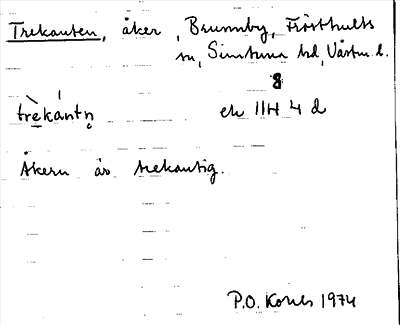 Trekanten, åker, Brunnby, Frösthults
sn, Simtuna hd, Västm. l.
8
trèkántn̥ ek 11H 4 d
Åkern är trekantig.
P.O. 1974